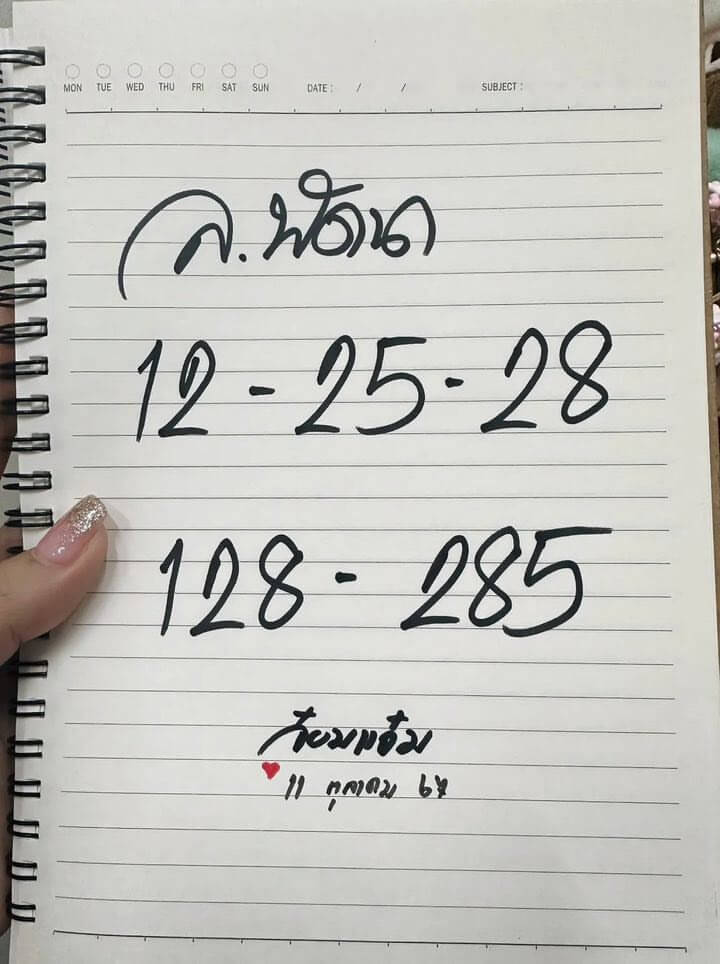 MON TUE WED THU FRI SAT SUN DATE : / / SUBJECT :
ล.พัฒนา
12 - 25 - 28
128 - 285
11 ตุลาคม 67